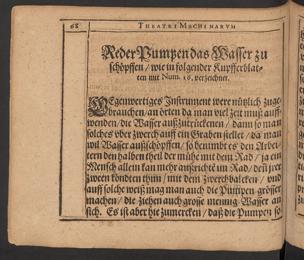 68 THEATRI MACHINARVM
Reder Pumpen das Wasser zu
schöpffen / wie in folgender Kupfferblat-
ten mit Num. 16. verzeichnet.
GEgenwertiges Instrument were nützlich zuge-
brauchen / an örten da man viel zeit muß auff-
wenden / die Wasser außzutrücknen / dann so man
solches vber zwerch auff ein Graben stellet / da man
wil Wasser außschöpffen / so benimbt es den Arbei-
tern den halben theil der mühe mit dem Rad / ja ein
Mensch allein kan mehr außricht im Rad / den jrer
zween köndten thun / mit dem zwerchbalcken / vnd
auff solche weiß mag man auch die Pumpen grösser
machen / die ziehen auch grosse mennig Wasser an
sich. Es ist aber hie zumercken / daß die Pumpen so